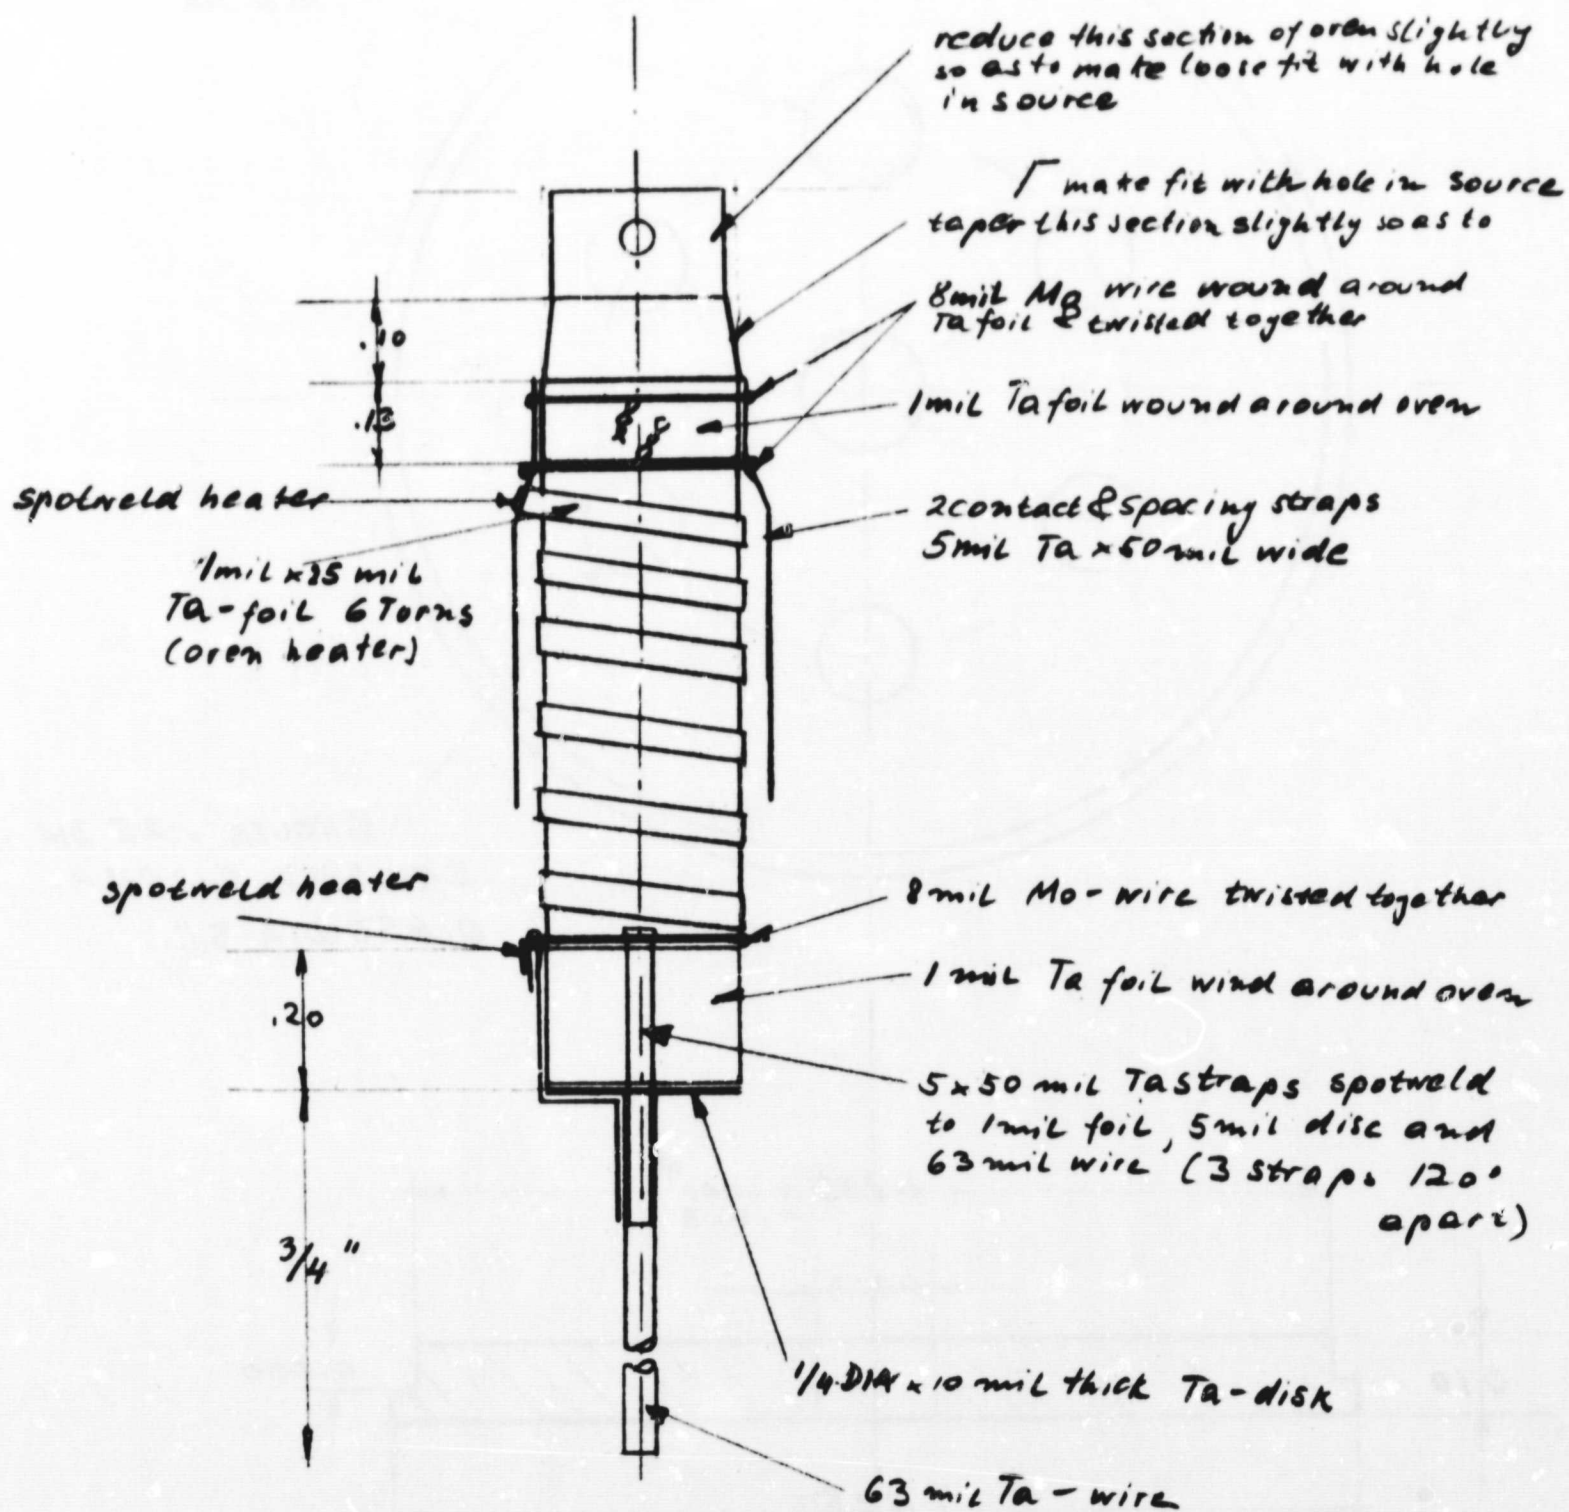 reduce this section of oven slightly
so as to make loose fit with hole
in source
make fit with hole in source
taper this section slightly so as to
8mil Mo wire wound around
Ta foil & twisted together
.10
1mil Ta foil wound around oven
.13
spotweld heater
2 contact & spacing straps
5mil Ta x 50 mil wide
1mil x 25 mil
Ta-foil 6 Torns
(oven heater)
spotweld heater
8 mil Mo-wire twisted together
1 mil Ta foil wind around oven
.20
5 x 50 mil Ta straps spotweld
to 1mil foil, 5mil disc and
63 mil wire (3 straps 120°
apart)
3/4"
1/4 DIA x 10 mil thick Ta-disk
63 mil Ta-wire